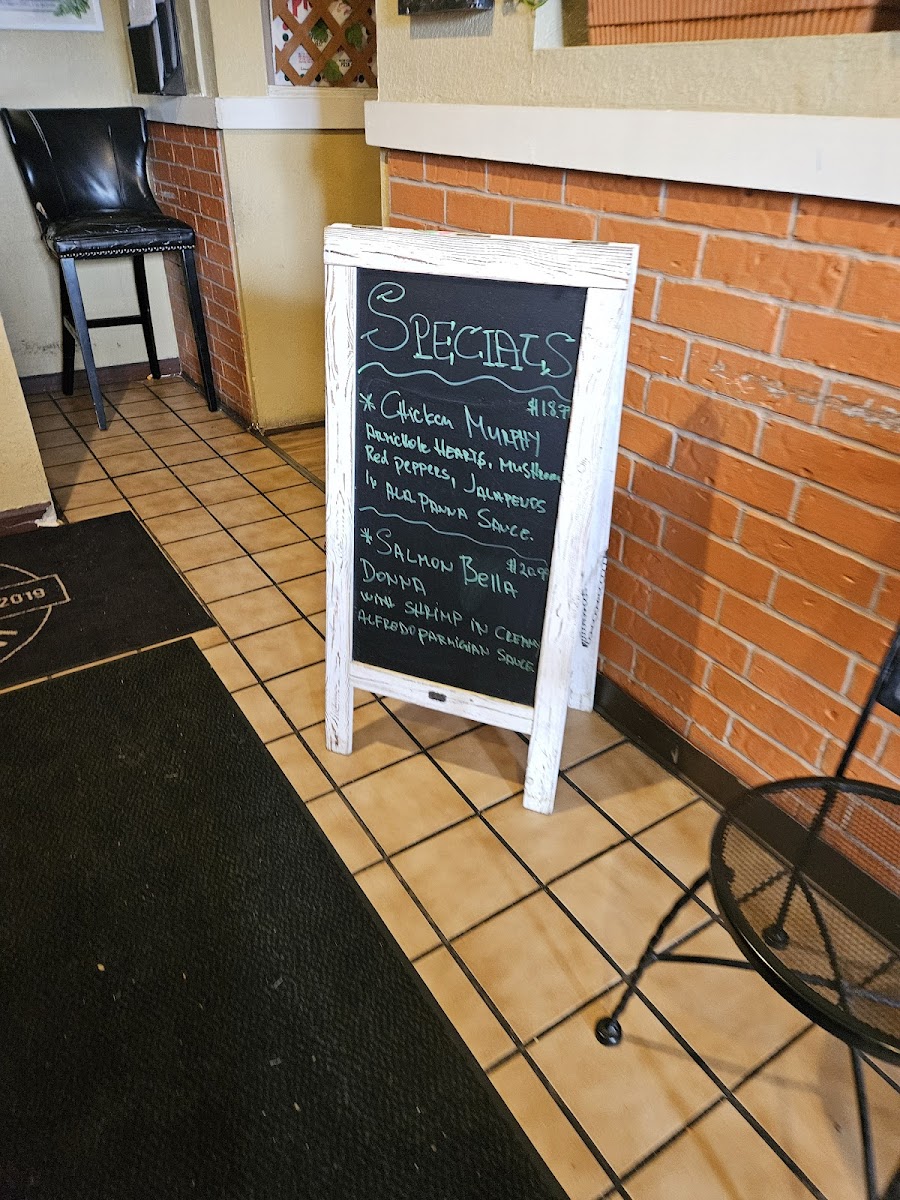 SPECIALS
$18.99
* Chicken MURPHY
Artichoke HEARTS, MUSHROOM
Red Peppers, JALAPENOS
IN ALA PANNA SAUCE.
* SALMON Bella
$20.99
DONNA
WITH SHRIMP IN CREAMY
ALFREDO PARMIGIAN SAUCE
2019